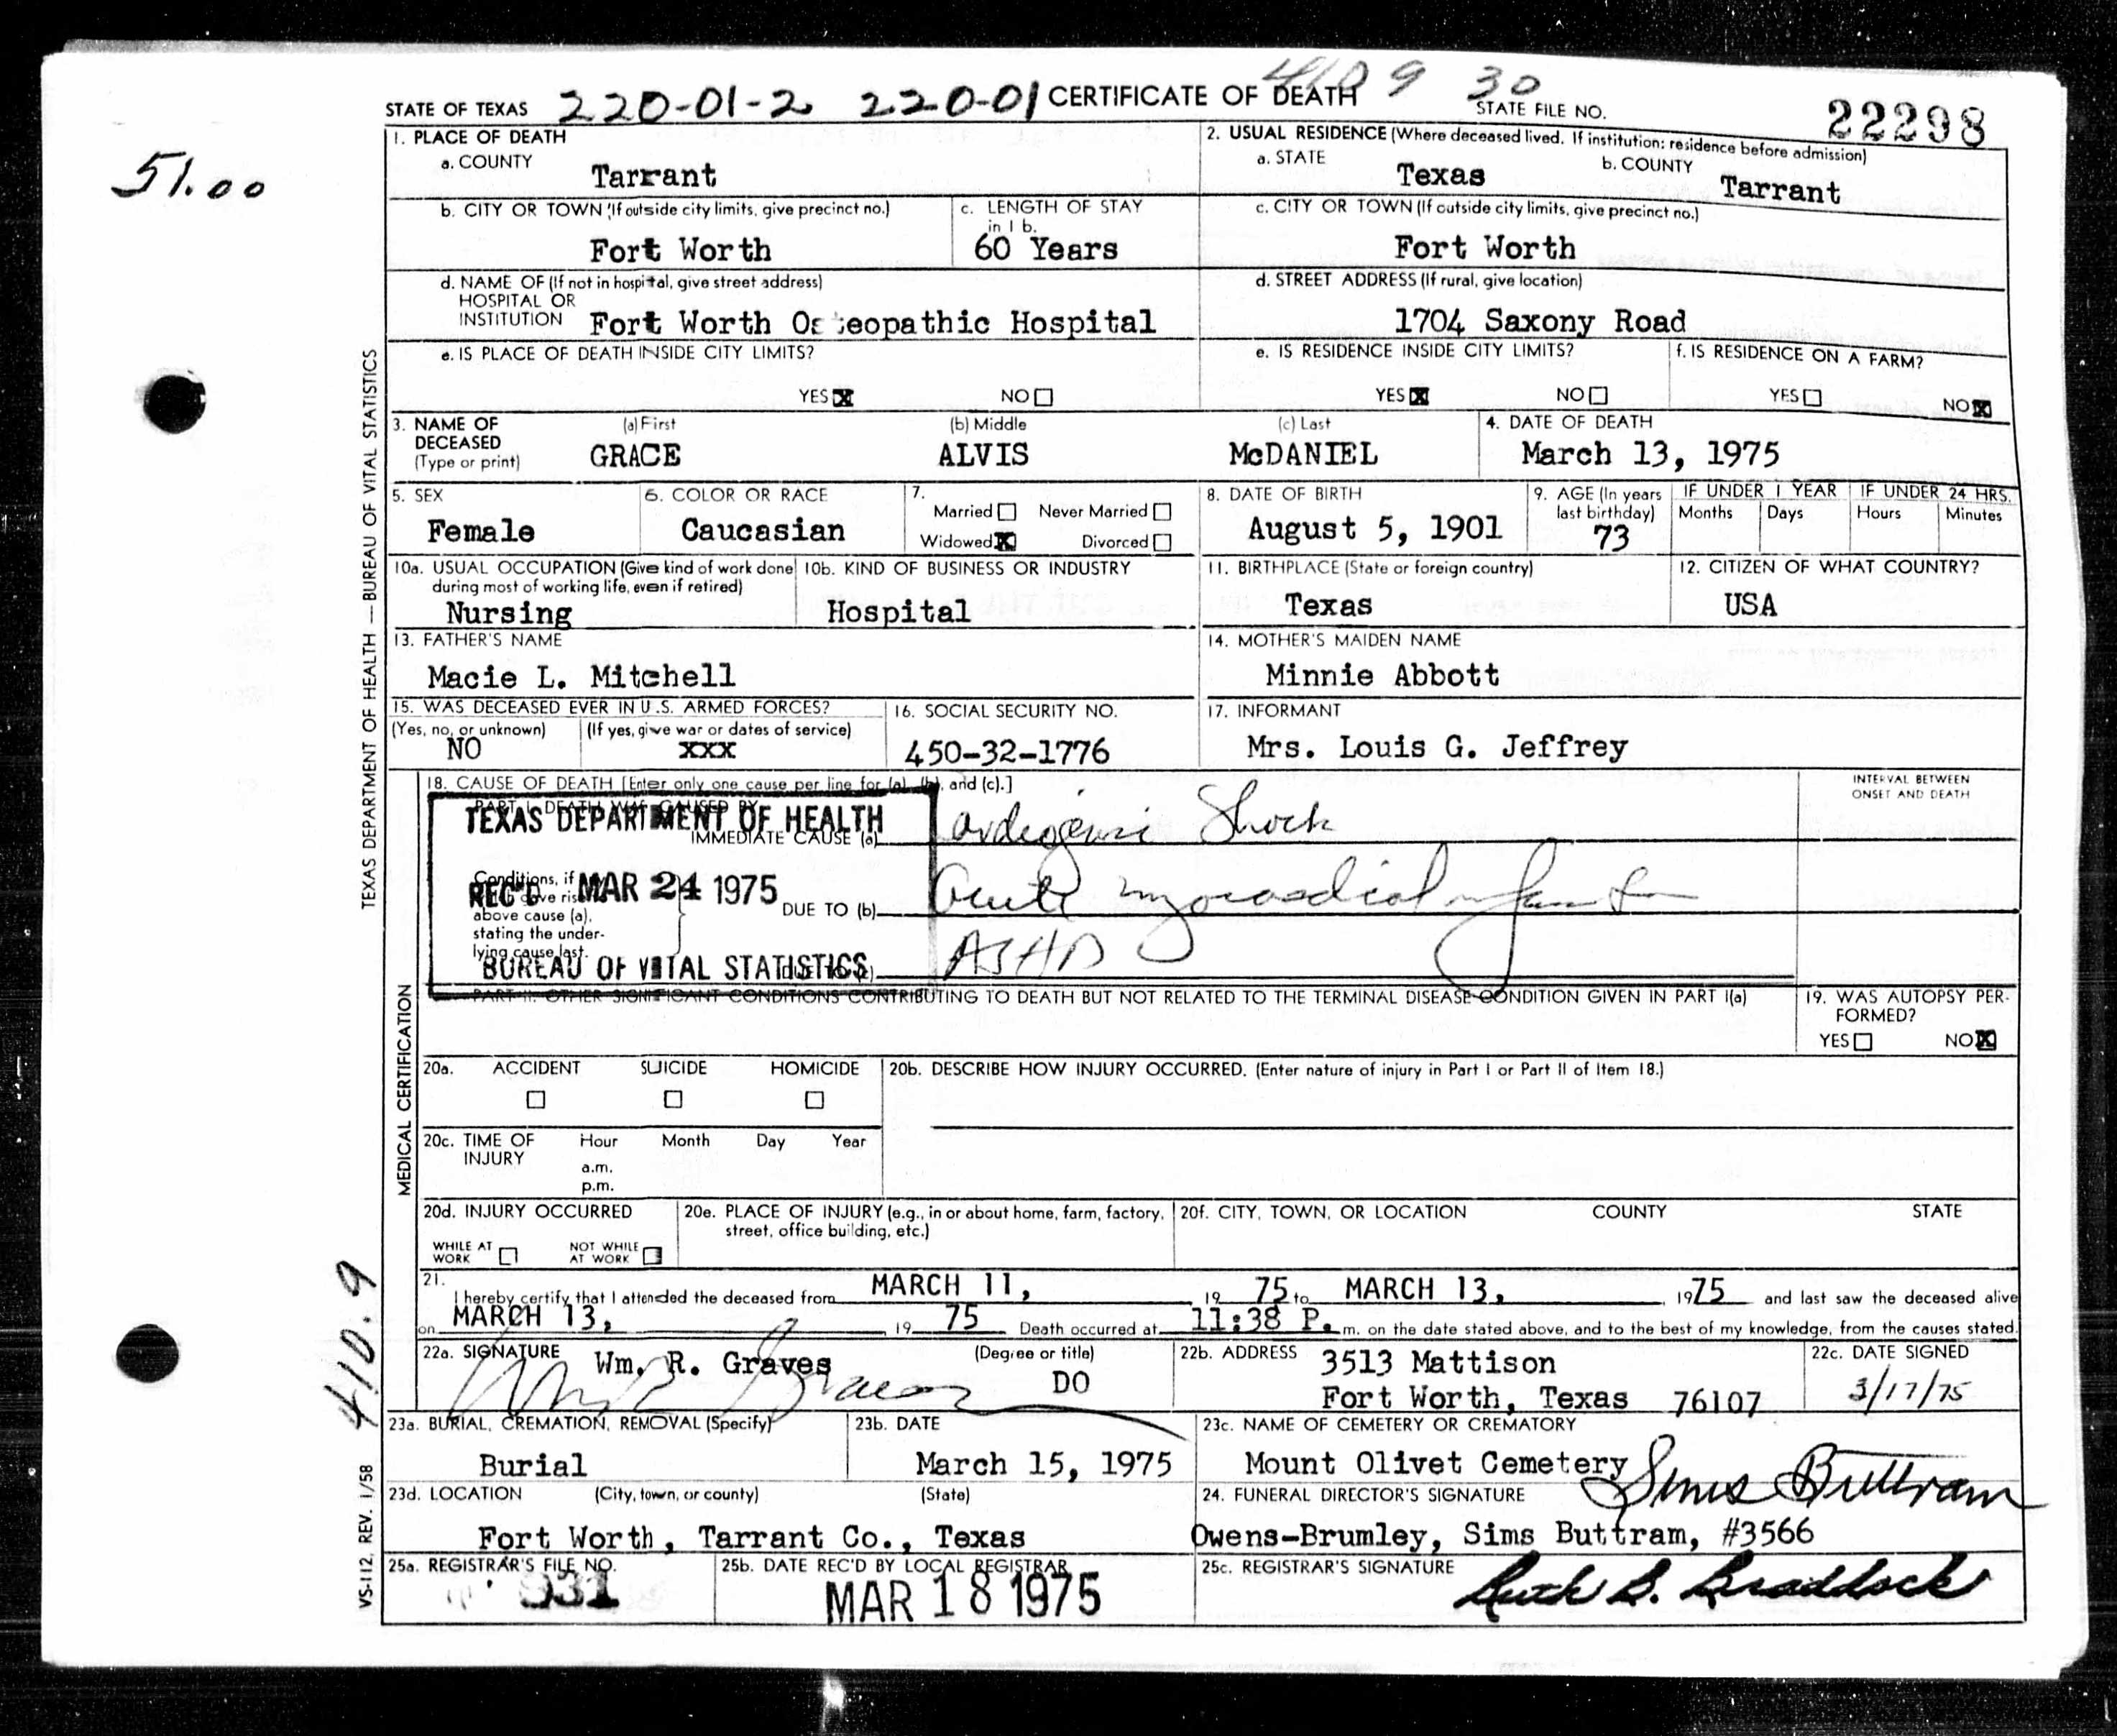 4109 30
STATE OF TEXAS 220-01-2 220-01 CERTIFICATE OF DEATH STATE FILE NO. 22298
51.00
1. PLACE OF DEATH
a. COUNTY Tarrant
2. USUAL RESIDENCE (Where deceased lived. If institution: residence before admission)
a. STATE Texas b. COUNTY Tarrant
b. CITY OR TOWN (If outside city limits, give precinct no.) Fort Worth
c. LENGTH OF STAY in 1 b. 60 Years
c. CITY OR TOWN (If outside city limits, give precinct no.) Fort Worth
d. NAME OF (If not in hospital, give street address)
HOSPITAL OR
INSTITUTION Fort Worth Osteopathic Hospital
d. STREET ADDRESS (If rural, give location)
1704 Saxony Road
e. IS PLACE OF DEATH INSIDE CITY LIMITS?
YES X NO
e. IS RESIDENCE INSIDE CITY LIMITS?
YES X NO
f. IS RESIDENCE ON A FARM?
YES NO X
3. NAME OF DECEASED (Type or print)
(a) First GRACE
(b) Middle ALVIS
(c) Last McDANIEL
4. DATE OF DEATH
March 13, 1975
5. SEX Female
6. COLOR OR RACE Caucasian
7. Married Never Married
Widowed X Divorced
8. DATE OF BIRTH August 5, 1901
9. AGE (In years last birthday) 73
IF UNDER 1 YEAR Months Days
IF UNDER 24 HRS. Hours Minutes
10a. USUAL OCCUPATION (Give kind of work done during most of working life, even if retired)
Nursing
10b. KIND OF BUSINESS OR INDUSTRY
Hospital
11. BIRTHPLACE (State or foreign country)
Texas
12. CITIZEN OF WHAT COUNTRY?
USA
13. FATHER'S NAME
Macie L. Mitchell
14. MOTHER'S MAIDEN NAME
Minnie Abbott
15. WAS DECEASED EVER IN U.S. ARMED FORCES?
(Yes, no, or unknown) NO
(If yes, give war or dates of service) XXX
16. SOCIAL SECURITY NO.
450-32-1776
17. INFORMANT
Mrs. Louis G. Jeffrey
18. CAUSE OF DEATH [Enter only one cause per line for (a), (b), and (c).]
INTERVAL BETWEEN ONSET AND DEATH
PART I. DEATH WAS CAUSED BY
IMMEDIATE CAUSE (a) Cardiogenic Shock
TEXAS DEPARTMENT OF HEALTH
REC'D MAR 24 1975
BUREAU OF VITAL STATISTICS
Conditions, if
which gave rise
above cause (a),
stating the under-
lying cause last.
DUE TO (b) Acute myocardial infarction
ASHD
PART II. OTHER SIGNIFICANT CONDITIONS CONTRIBUTING TO DEATH BUT NOT RELATED TO THE TERMINAL DISEASE CONDITION GIVEN IN PART I(a)
19. WAS AUTOPSY PER-
FORMED?
YES NO X
20a. ACCIDENT SUICIDE HOMICIDE
20b. DESCRIBE HOW INJURY OCCURRED. (Enter nature of injury in Part I or Part II of Item 18.)
20c. TIME OF INJURY Hour Month Day Year
a.m.
p.m.
20d. INJURY OCCURRED
WHILE AT WORK NOT WHILE AT WORK
20e. PLACE OF INJURY (e.g., in or about home, farm, factory, street, office building, etc.)
20f. CITY, TOWN, OR LOCATION COUNTY STATE
21. I hereby certify that I attended the deceased from MARCH 11, 19 75 to MARCH 13, 1975 and last saw the deceased alive
on MARCH 13, 19 75 Death occurred at 11:38 P. m. on the date stated above, and to the best of my knowledge, from the causes stated.
22a. SIGNATURE Wm. R. Graves
Wm R Graves
(Degree or title) DO
22b. ADDRESS 3513 Mattison
Fort Worth, Texas 76107
22c. DATE SIGNED
3/17/75
23a. BURIAL, CREMATION, REMOVAL (Specify)
Burial
23b. DATE
March 15, 1975
23c. NAME OF CEMETERY OR CREMATORY
Mount Olivet Cemetery
23d. LOCATION (City, town, or county) (State)
Fort Worth, Tarrant Co., Texas
24. FUNERAL DIRECTOR'S SIGNATURE Sims Buttram
Owens-Brumley, Sims Buttram, #3566
25a. REGISTRAR'S FILE NO.
931
25b. DATE REC'D BY LOCAL REGISTRAR
MAR 18 1975
25c. REGISTRAR'S SIGNATURE Ruth B. Braddock
TEXAS DEPARTMENT OF HEALTH — BUREAU OF VITAL STATISTICS
MEDICAL CERTIFICATION
410.9
VS-112, REV. 1/58